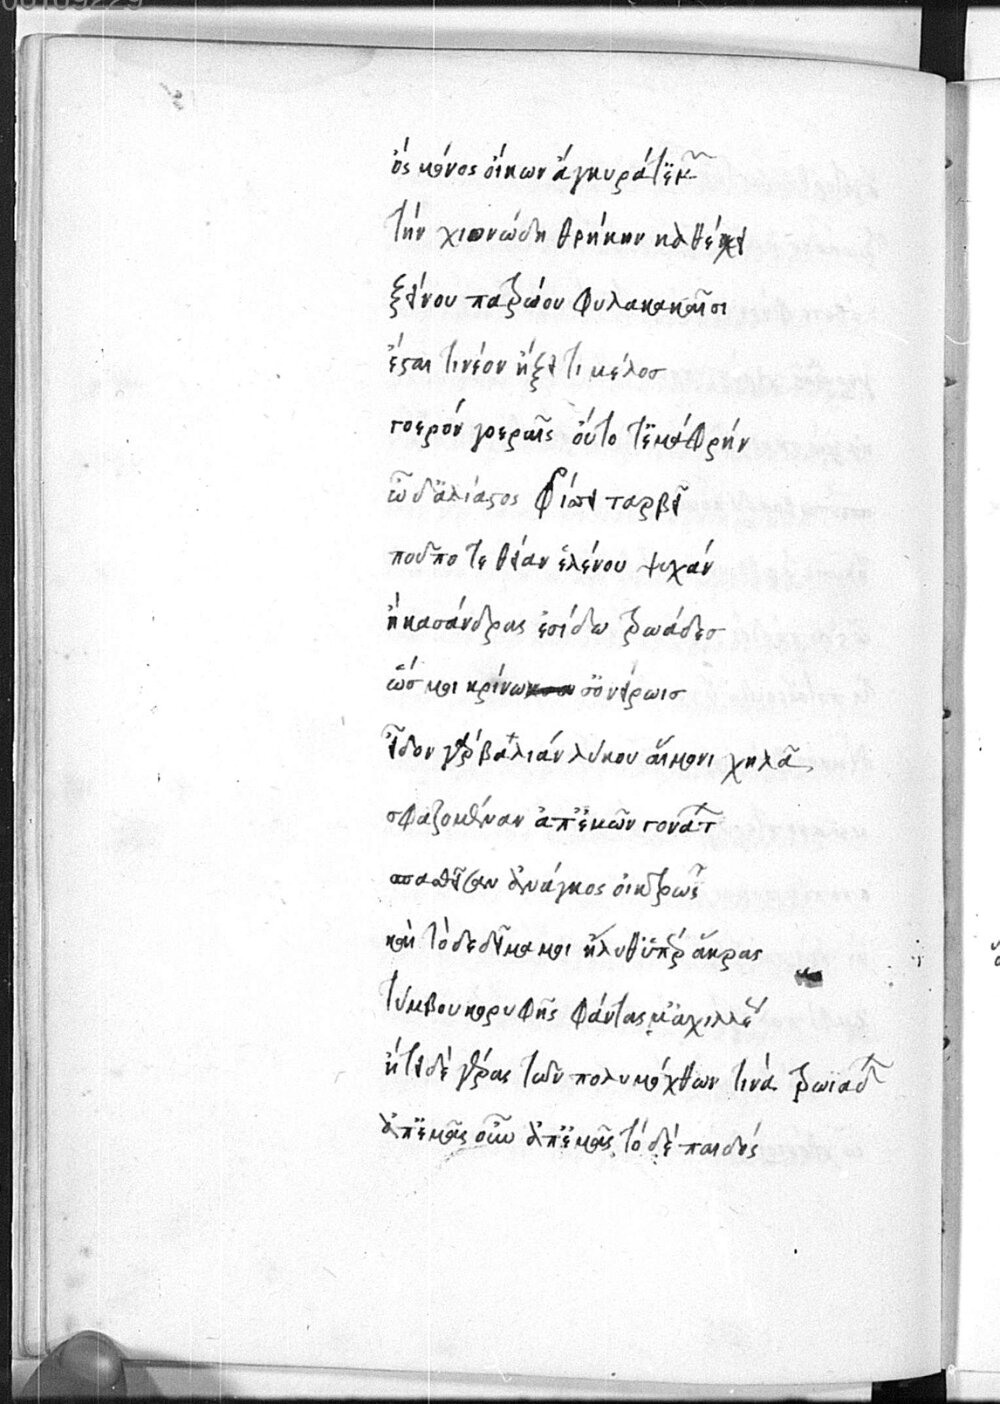 ὃς μόνος οἴκων ἄγκυρά τ' ἐμῶν
τὴν χιονώδη θρήκην κατέχει
ξείνου πατρώου φυλακαῖσι
ἔσται τι νέον ἥξει τι μέλοσ
γοερόν γοεραῖς οὔποτ' ἐμὰ φρήν
ὧδ' ἀλίαστος φρίσσει ταρβεῖ
ποῦ ποτε θείαν ἑλένου ψυχάν
ἢ κασάνδρας ἐσίδω τρωάδεσ
ὥσ μοι κρίνω σ' ὀνείρωισ
εἶδον γὰρ βαλιάν λύκου αἵμονι χηλᾶ
σφαζομέναν ἀπ' ἐμῶν γονάτων
σπασθεῖσαν ἀνάγκοσ οἰκτρῶς
καὶ τόδε δεῖμα μοι ἤλυθ' ὑπὲρ ἄκρας
τύμβου κορυφῆς φάντασμ' ἀχιλλέως
ᾔτει δὲ γέρας τῶν πολυμόχθων τινὰ τρωϊάδων
ἀπ' ἐμᾶς οὖν ἀπ' ἐμᾶς τόδε παιδὸς